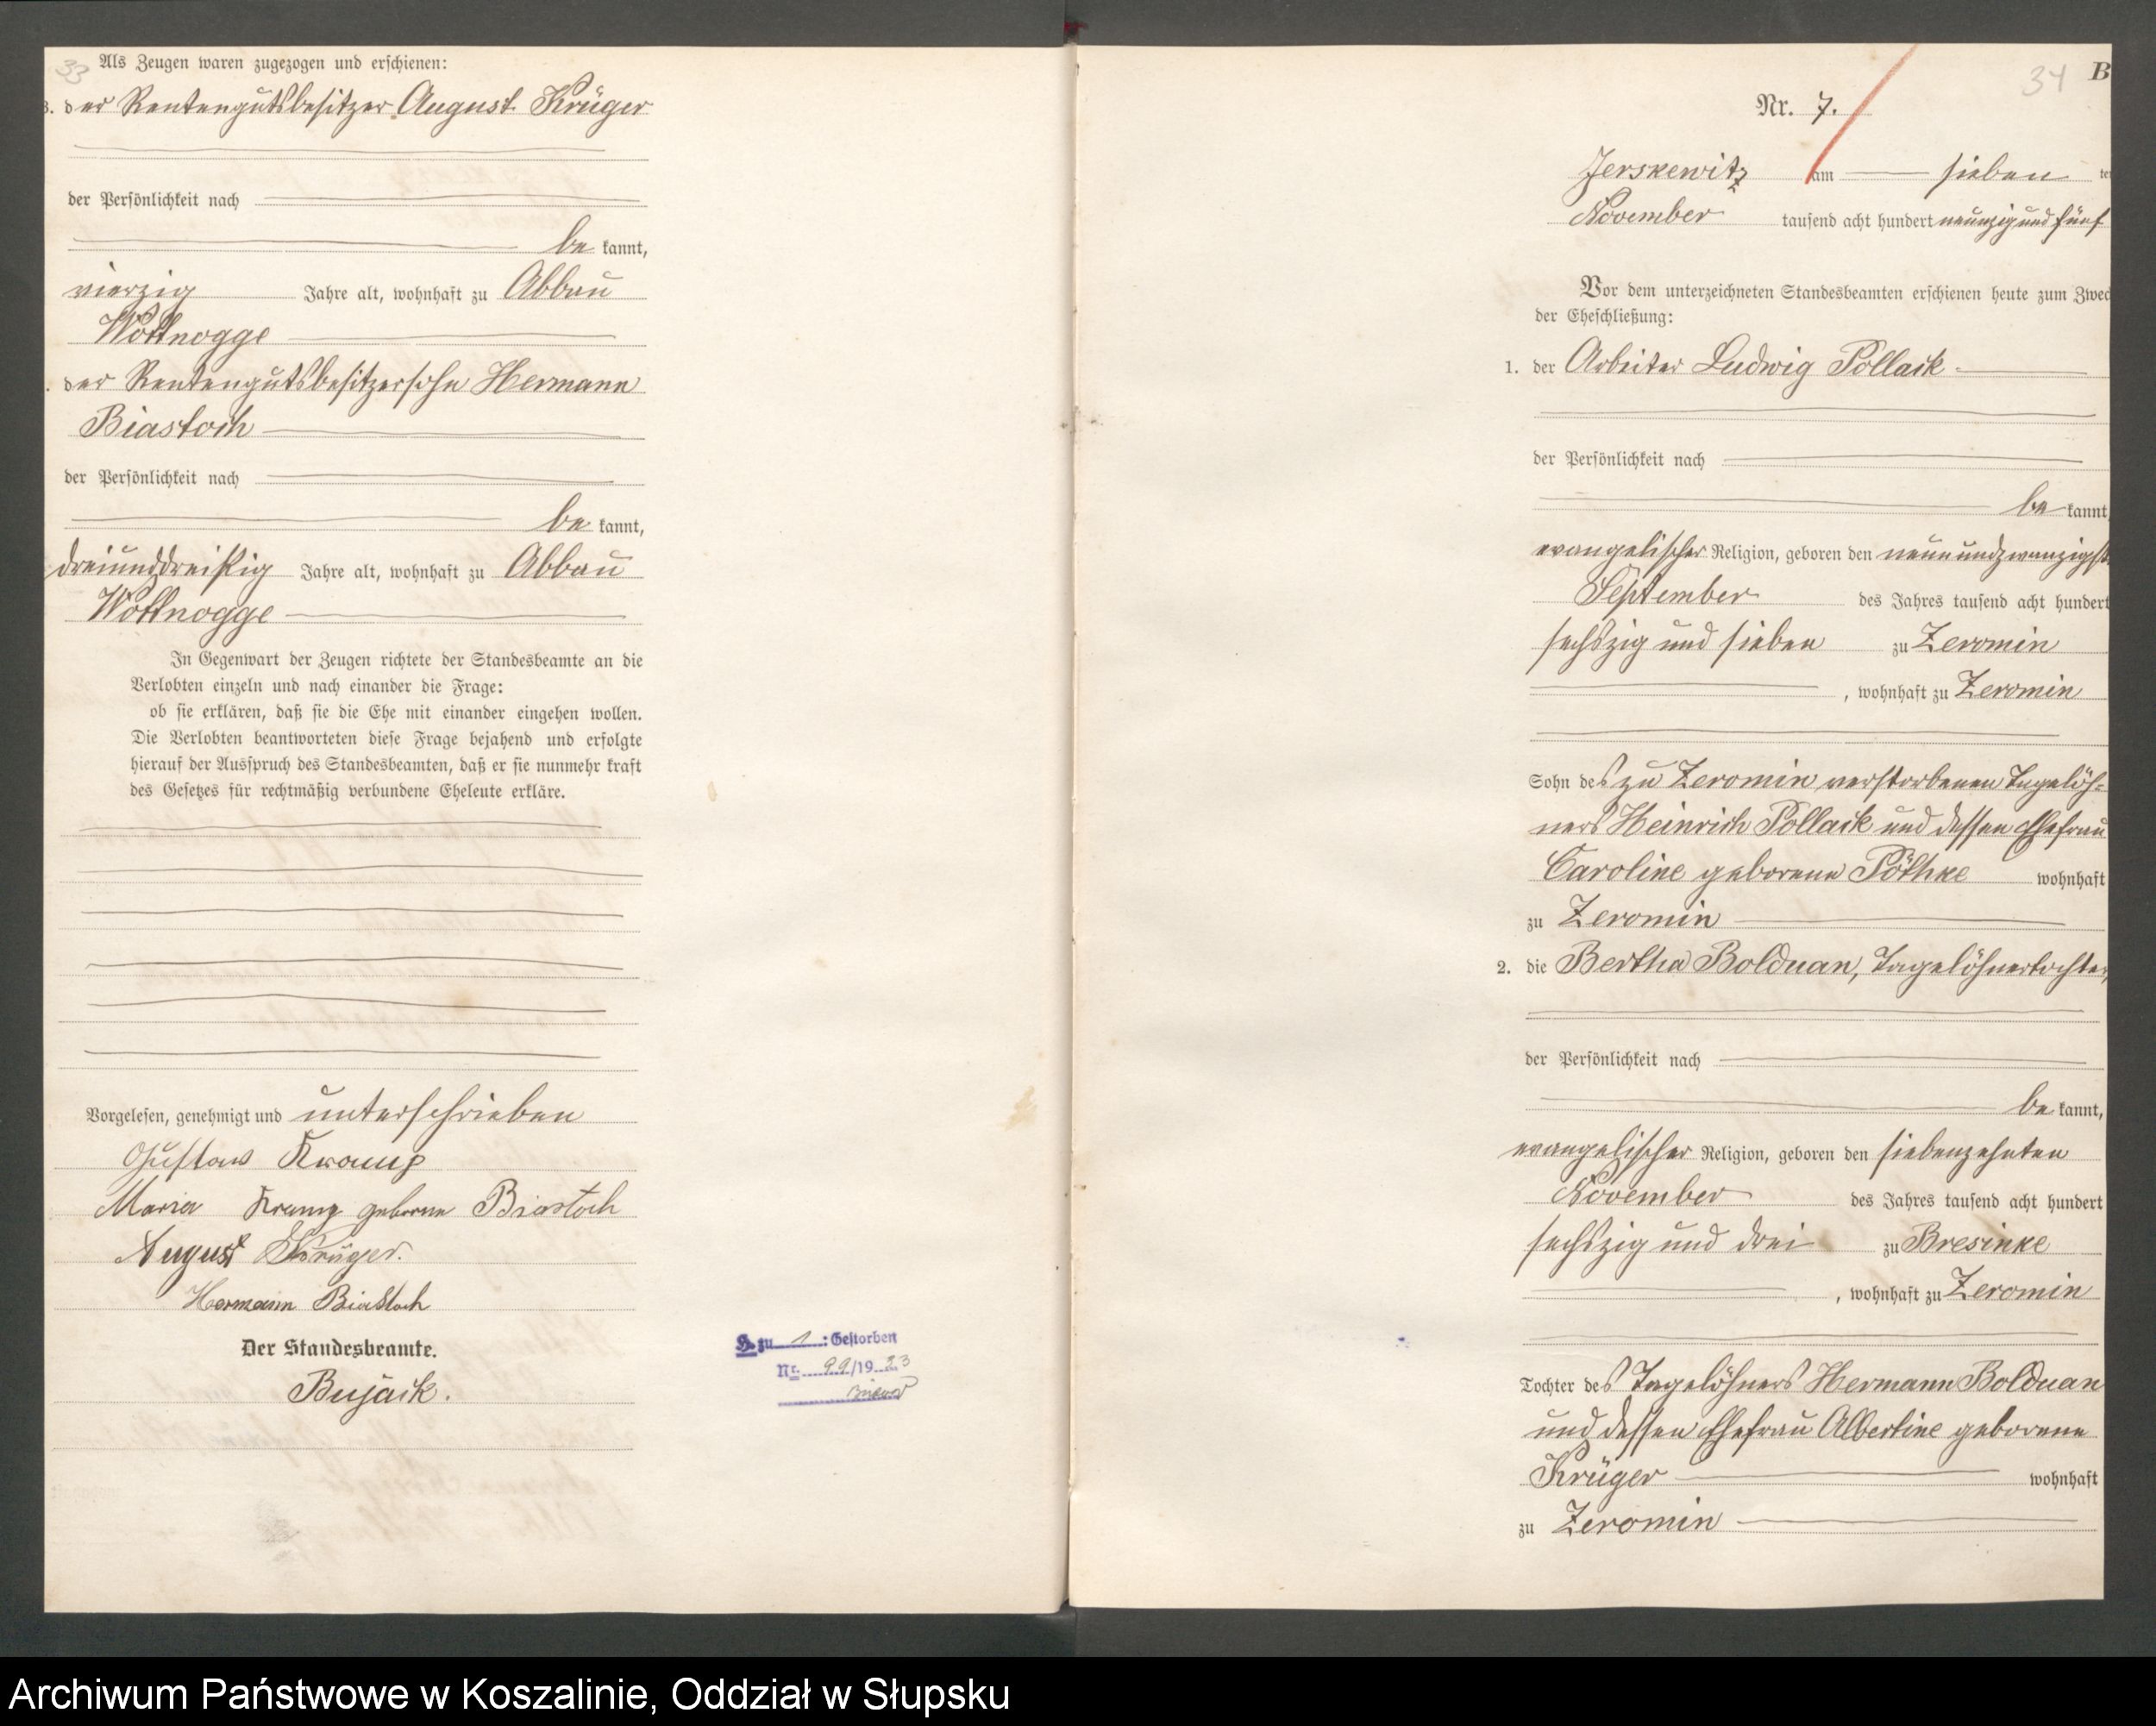 33
Als Zeugen waren zugezogen und erschienen:
3. der Rentengutsbesitzer August Krüger
der Persönlichkeit nach
be kannt,
vierzig Jahre alt, wohnhaft zu Abbau
Wottnogge
der Rentengutsbesitzersohn Hermann
Biastoch
der Persönlichkeit nach
be kannt,
dreiunddreißig Jahre alt, wohnhaft zu Abbau
Wottnogge
In Gegenwart der Zeugen richtete der Standesbeamte an die
Verlobten einzeln und nach einander die Frage:
ob sie erklären, daß sie die Ehe mit einander eingehen wollen.
Die Verlobten beantworteten diese Frage bejahend und erfolgte
hierauf der Ausspruch des Standesbeamten, daß er sie nunmehr kraft
des Gesetzes für rechtmäßig verbundene Eheleute erkläre.
Vorgelesen, genehmigt und unterschrieben
Gustav Kramp
Maria Kramp geborene Biastoch
August Krüger.
Hermann Biastoch
Der Standesbeamte.
Bujack.
H. zu 1: Gestorben
Nr. 99/1923
34
B
Nr. 7.
Jerskewitz am sieben ten
November tausend acht hundert neunzig und fünf
Vor dem unterzeichneten Standesbeamten erschienen heute zum Zwec
der Eheschließung:
1. der Arbeiter Ludwig Pollack
der Persönlichkeit nach
be kannt,
evangelischer Religion, geboren den neunundzwanzigst
September des Jahres tausend acht hundert
sechszig und sieben zu Zeromin
, wohnhaft zu Zeromin
Sohn des zu Zeromin verstorbenen Tagelöh-
ners Heinrich Pollack und dessen Ehefrau
Caroline geborene Pöthke wohnhaft
zu Zeromin
2. die Bertha Bolduan, Tagelöhnertochter,
der Persönlichkeit nach
be kannt,
evangelischer Religion, geboren den siebenzehnten
November des Jahres tausend acht hundert
sechszig und drei zu Bresinke
, wohnhaft zu Zeromin
Tochter des Tagelöhners Hermann Bolduan
und dessen Ehefrau Albertine geborene
Krüger wohnhaft
zu Zeromin
Archiwum Państwowe w Koszalinie, Oddział w Słupsku